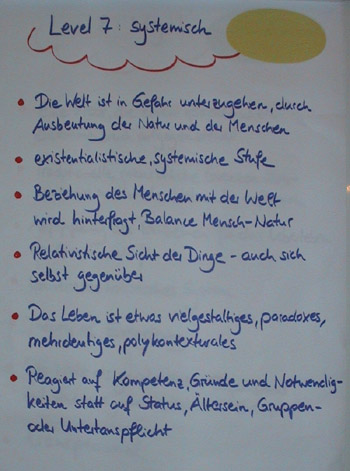 Level 7: systemisch
• Die Welt ist in Gefahr unterzugehen, durch
Ausbeutung der Natur und der Menschen
• existentialistische, systemische Stufe
• Beziehung des Menschen mit der Welt
wird hinterfragt, Balance Mensch-Natur
• Relativistische Sicht der Dinge - auch sich
selbst gegenüber
• Das Leben ist etwas vielgestaltiges, paradoxes,
mehrdeutiges, polykontexturales
• Reagiert auf Kompetenz, Gründe und Notwendig-
keiten statt auf Status, Ältersein, Gruppen-
oder Untertanspflicht